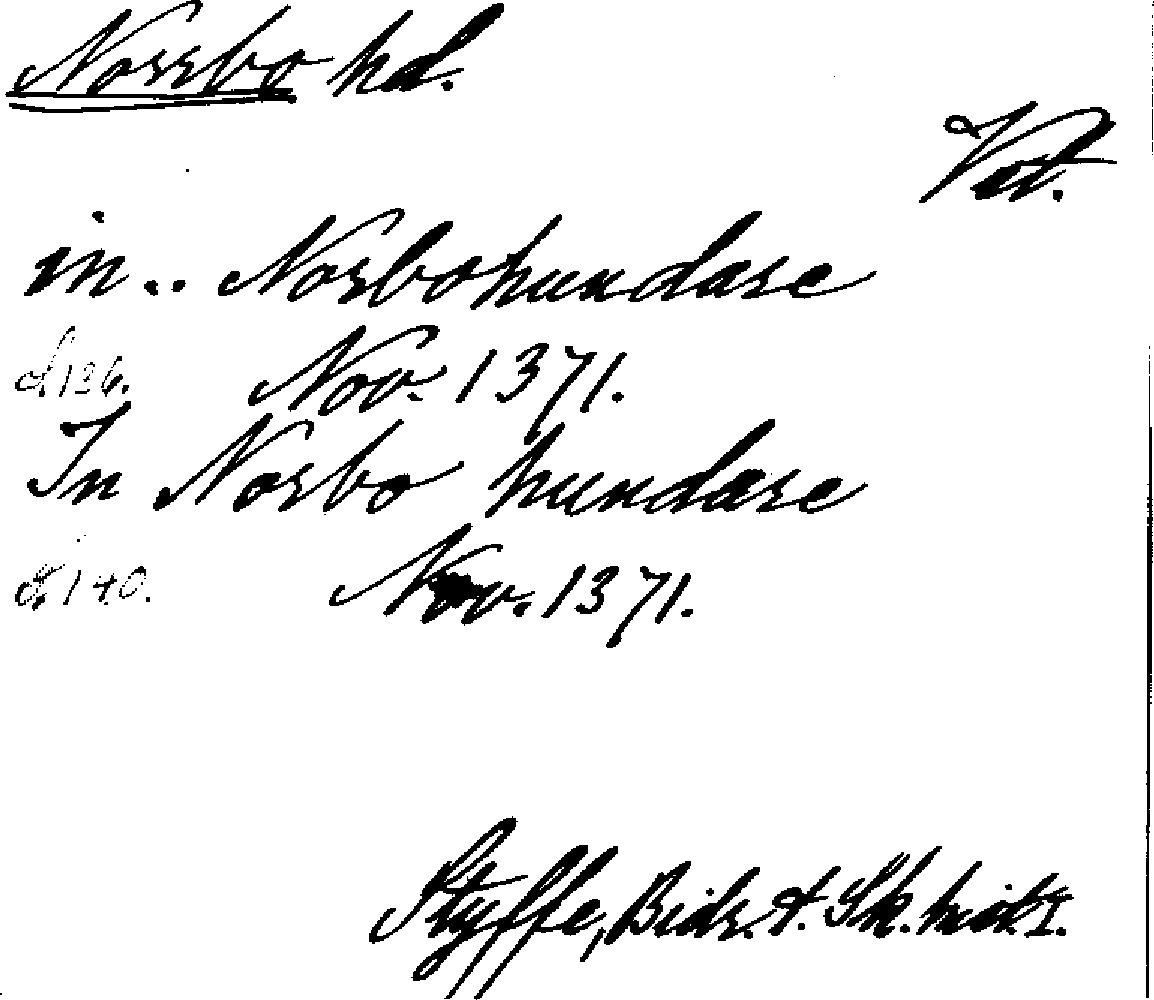 Norrbo hd.
Vstm.
in.. Norbohundare
s. 136. Nov. 1371.
In Norbo hundare
s. 140. Nov. 1371.
Styffe, Bidr. t. Sk. hist. I.